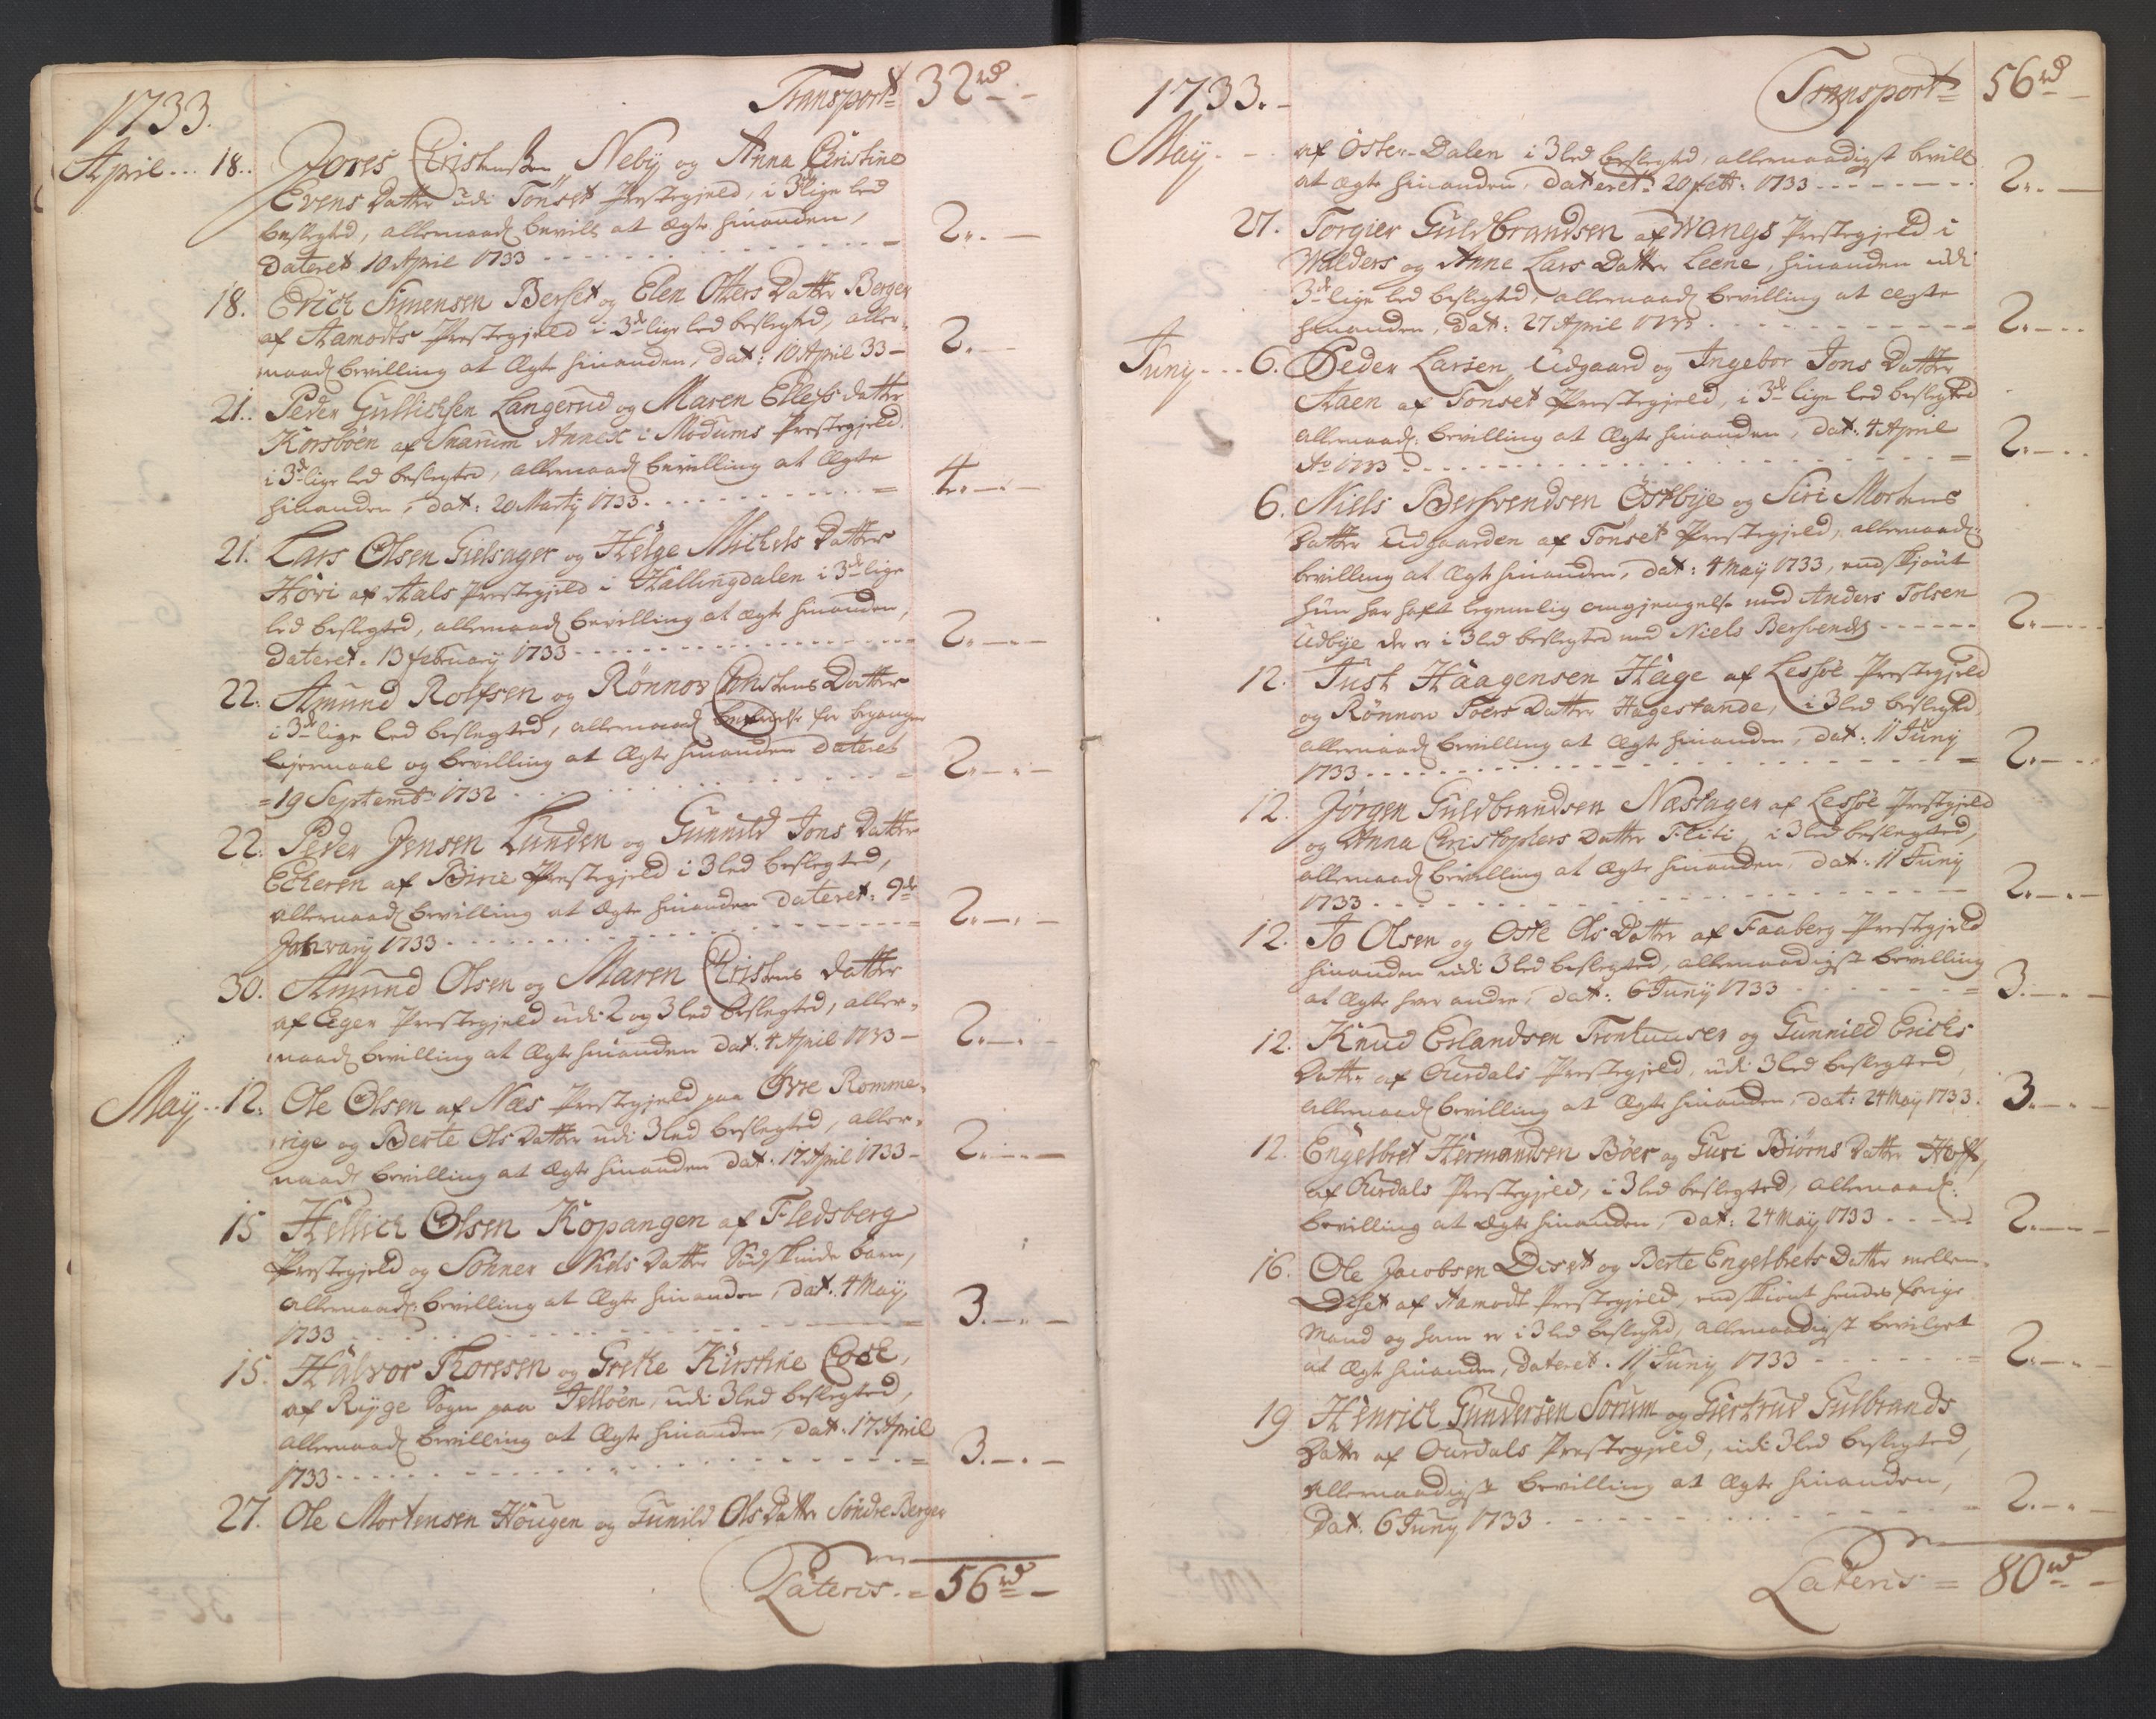 Transport 32 rd
1733.
April 18. Jores Christensen Neby og Anna Christine
Evens Datter udi Tönset Prestegjeld, i 3die lige led
beslegted, allernaad bevilt at Ægte hinanden,
Dateret 10 April 1733 2
18. Erich Simensen Berset og Elen Otters Datter Berger
af Aamodts Prestegjeld i 3de lige led beslegted, aller-
naad bevilling at Ægte hinanden, Dat: 10 April 33 2
21. Peder Gullichsen Langerud og Maren Ellefs datter
Korsböen af Snarum Annex i Modums Prestegjeld
i 3de lige led beslegted, allernaad bevilling at Ægte
hinanden, Dat: 20 Marty 1733 4
21. Lars Olsen Gielsager og Helge Michels Datter
Höri af Aals Prestegjeld i Hallingdalen i 3de lige
led beslegted, allernaad bevilling at Ægte hinanden,
Dateret. 13 february 1733 2
22. Amund Rolfsen og Rönnov Christens Datter
i 3de lige led beslegted, allernaad befrielse for begangne
lejermaal og bevilling at Ægte hinanden Dateret
19 Septembr 1732 2
22. Peder Jensen Lunden og Gunnild Jons Datter
Eckeren af Birie Prestegjeld i 3 led beslegted,
allernaad bevilling at Ægte hinanden Dateret. 9de
January 1733 2
30. Amund Olsen og Maren Christens datter
af Eger Prestegjeld udi 2 og 3 led beslegted, aller-
naad bevilling at Ægte hinanden Dat. 4 April 1733 2
May 12. Ole Olsen af Næs Prestegjeld paa Övre Romme-
rige og Berte Ols Datter udi 3 led beslegted, aller-
naad bevilling at Ægte hinanden Dat. 17 April 1733 2
15 Hellich Olsen Kopangen af Fledsberg
Prestegjeld og Söhner Niels Datter barn,
allernaad: bevilling at Ægte hinanden, Dat. 4 May
1733 3
15. Halvor Thoresen og Grethe Kirstine Cock,
af Ryge Sogn paa Jellöen, udi 3 led beslegted,
allernaad bevilling at Ægte hinanden, Dat. 17 April
1733 3
27. Ole Mortensen Hougen og Gunild Ols Datter Söndre Berger
Lateris = 56 rd
1733. Transport 56 rd
May af Öster-Dalen i 3 led beslegted, allernaadigst bevilt
at Ægte hinanden, Dateret 20 febr: 1733 2
27. Torgier Guldbrandsen af Wangs Prestegjeld i
Walders og Anne Lars Datter Leene, hinanden udi
3de lige led beslegted, allernaad bevilling at Ægte
hinanden, Dat: 27 April 1733 2
Juny 6. Peder Larsen Udgaard og Ingebor Jons Datter
Aaen af Tönset Prestegjeld, i 3de lige led beslegted
allernaad: bevilling at Ægte hinanden, Dat: 4 April
Ao 1733 2
6. Niels Bersvendsen Östbye og Siri Mortens
Datter Udgaarden af Tönset Prestegjeld, allernaad:
bevilling at Ægte hinanden, Dat: 4 May 1733, endskjönt
hun har haft legemlig omgjengelse med Anders Tolsen
Udbye der er i 3 led beslegted med Niels Bersvends 2
12. Just Haagensen Hage af Lessöe Prestegjeld
og Rönnow Toers Datter Hagestande, i 3 led beslegted,
allernaad bevilling at Ægte hinanden, Dat: 11 Juny
1733 2
12. Jörgen Guldbrandsen Næstager af Lessöe Prestgjeld
og Anna Christophers Datter Fliti, i 3 led beslegted,
allernaad bevilling at Ægte hinanden, Dat: 11 Juny
1733 2
12. Jo Olsen og Oste Ols Datter af Faaberg Prestegjeld
hinanden udi 3 led beslegted, allernaadigst bevilling
at Ægte hver andre, Dat: 6 Juny 1733 3
12. Knud Erlandsen Tronhuuser og Gunnild Erichs
Datter af Ourdals Prestegjeld, udi 3 led beslegted
allernaad bevilling at Ægte hinanden, Dat: 24 May 1733. 3
12. Engelbret Hermandsen Böer og Guri Biörns Datter Hoff,
af Ourdals Prestegjeld, i 3 led beslegted, allernaad:
bevilling at Ægte hinanden, Dat: 24 May 1733 2
16. Ole Jacobsen Diset og Berte Engelbrets Datter mellem-
Diset af Aamodt Prestegjeld, endskiönt hendes forige
Mand og ham er i 3 led beslegted, allernaadigst bevilget
at Ægte hinanden, Dateret. 11 Juny 1733 2
19 Henrich Gundersen Sorum og Giertrud Gulbrands
Datter af Ourdals Prestegjeld, udi 3 led beslegted,
allernaadigst bevilling at Ægte hinanden,
Dat: 6 Juny 1733 2
Lateris = 80 rd